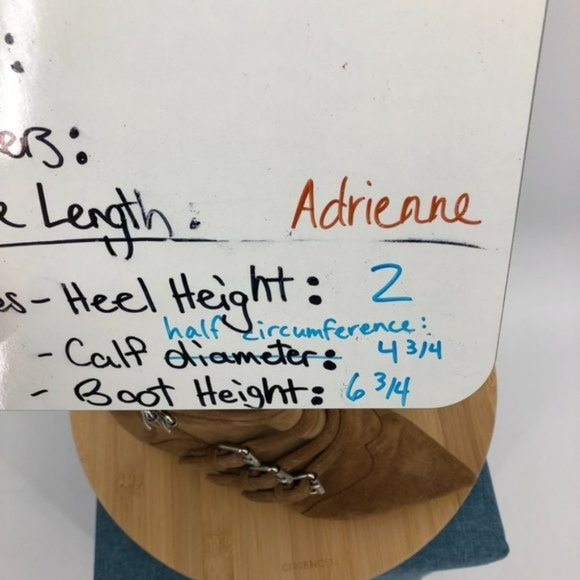 :
ers:
e Length: Adrienne
es - Heel Height: 2
half circumference:
- Calf diameter: 4 3/4
- Boot Height: 6 3/4